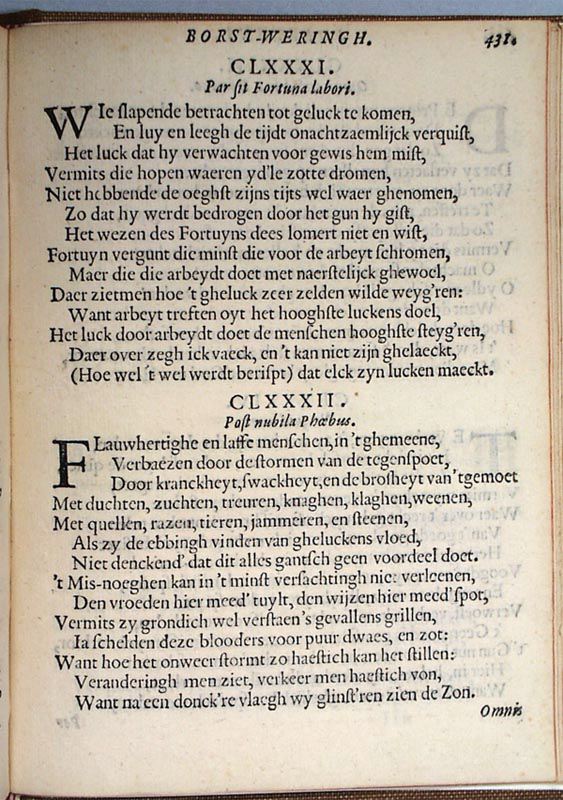 BORST-WERINGH. 431.
CLXXXI.
Par sit Fortuna labori.
WIe slapende betrachten tot geluck te komen,
En luy en leegh de tijdt onachtzaemlijck verquist,
Het luck dat hy verwachten voor gewis hem mist,
Vermits die hopen waeren yd'le zotte dromen,
Niet hebbende de oeghst zijns tijts wel waer ghenomen,
Zo dat hy werdt bedrogen door het gun hy gist,
Het wezen des Fortuyns dees lomert niet en wist,
Fortuyn vergunt die minst die voor de arbeyt schromen,
Maer die die arbeydt doet met naerstelijck ghewoel,
Daer zietmen hoe 't gheluck zeer zelden wilde weyg'ren:
Want arbeyt treften oyt het hooghste luckens doel,
Het luck door arbeydt doet de menschen hooghste steyg'ren,
Daer over zegh ick vaeck, en 't kan niet zijn ghelaeckt,
(Hoe wel 't wel werdt berispt) dat elck zyn lucken maeckt.
CLXXXII.
Post nubila Phœbus.
FLauwhertighe en laffe menschen, in 't ghemeene,
Verbaezen door de stormen van de tegenspoet,
Door kranckheyt, swackheyt, en de brosheyt van 't gemoet
Met duchten, zuchten, treuren, knaghen, klaghen, weenen,
Met quellen, razen, tieren, jammeren, en steenen,
Als zy de ebbingh vinden van gheluckens vloed,
Niet denckend' dat dit alles gantsch geen voordeel doet.
't Mis-noeghen kan in 't minst versachtingh niet verleenen,
Den vroeden hier meed' tuylt, den wijzen hier meed' spot,
Vermits zy grondich wel verstaen 's gevallens grillen,
Ia schelden deze blooders voor puur dwaes, en zot:
Want hoe het onweer stormt zo haestich kan het stillen:
Veranderingh men ziet, verkeer men haestich von,
Want na een donck're vlaegh wy glinst'ren zien de Zon.
Omnis